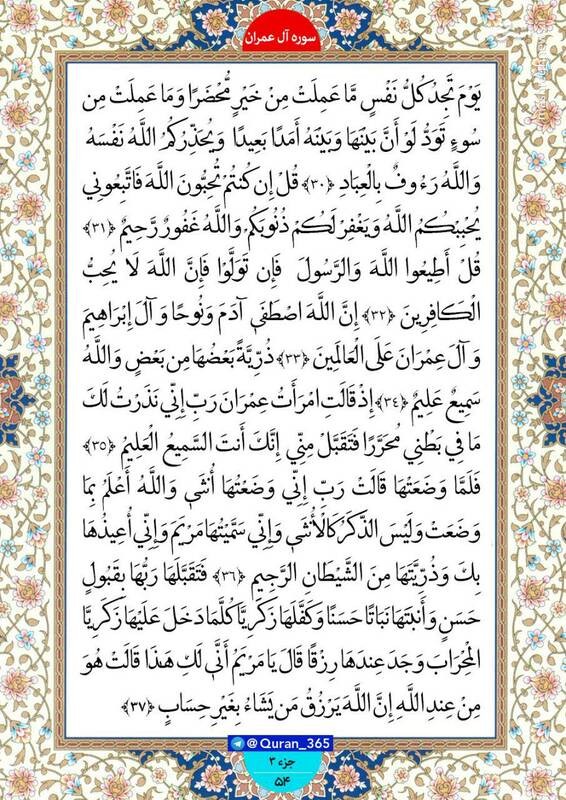 سوره آل عمران
يَوْمَ تَجِدُ كُلُّ نَفْسٍ مَّا عَمِلَتْ مِنْ خَيْرٍ مُّحْضَرًا وَمَا عَمِلَتْ مِن
سُوءٍ تَوَدُّ لَوْ أَنَّ بَيْنَهَا وَبَيْنَهُ أَمَدًا بَعِيدًا وَيُحَذِّرُكُمُ اللَّهُ نَفْسَهُ
وَاللَّهُ رَءُوفٌ بِالْعِبَادِ ﴿۳۰﴾ قُلْ إِن كُنتُمْ تُحِبُّونَ اللَّهَ فَاتَّبِعُونِي
يُحْبِبْكُمُ اللَّهُ وَيَغْفِرْ لَكُمْ ذُنُوبَكُمْ وَاللَّهُ غَفُورٌ رَّحِيمٌ ﴿۳۱﴾
قُلْ أَطِيعُوا اللَّهَ وَالرَّسُولَ فَإِن تَوَلَّوْا فَإِنَّ اللَّهَ لَا يُحِبُّ
الْكَافِرِينَ ﴿۳۲﴾ إِنَّ اللَّهَ اصْطَفَى آدَمَ وَنُوحًا وَآلَ إِبْرَاهِيمَ
وَآلَ عِمْرَانَ عَلَى الْعَالَمِينَ ﴿۳۳﴾ ذُرِّيَّةً بَعْضُهَا مِن بَعْضٍ وَاللَّهُ
سَمِيعٌ عَلِيمٌ ﴿۳۴﴾ إِذْ قَالَتِ امْرَأَتُ عِمْرَانَ رَبِّ إِنِّي نَذَرْتُ لَكَ
مَا فِي بَطْنِي مُحَرَّرًا فَتَقَبَّلْ مِنِّي إِنَّكَ أَنتَ السَّمِيعُ الْعَلِيمُ ﴿۳۵﴾
فَلَمَّا وَضَعَتْهَا قَالَتْ رَبِّ إِنِّي وَضَعْتُهَا أُنثَى وَاللَّهُ أَعْلَمُ بِمَا
وَضَعَتْ وَلَيْسَ الذَّكَرُ كَالْأُنثَى وَإِنِّي سَمَّيْتُهَا مَرْيَمَ وَإِنِّي أُعِيذُهَا
بِكَ وَذُرِّيَّتَهَا مِنَ الشَّيْطَانِ الرَّجِيمِ ﴿۳۶﴾ فَتَقَبَّلَهَا رَبُّهَا بِقَبُولٍ
حَسَنٍ وَأَنبَتَهَا نَبَاتًا حَسَنًا وَكَفَّلَهَا زَكَرِيَّا كُلَّمَا دَخَلَ عَلَيْهَا زَكَرِيَّا
الْمِحْرَابَ وَجَدَ عِندَهَا رِزْقًا قَالَ يَا مَرْيَمُ أَنَّى لَكِ هَذَا قَالَتْ هُوَ
مِنْ عِندِ اللَّهِ إِنَّ اللَّهَ يَرْزُقُ مَن يَشَاءُ بِغَيْرِ حِسَابٍ ﴿۳۷﴾
@Quran_365
جزء ۳
۵۴